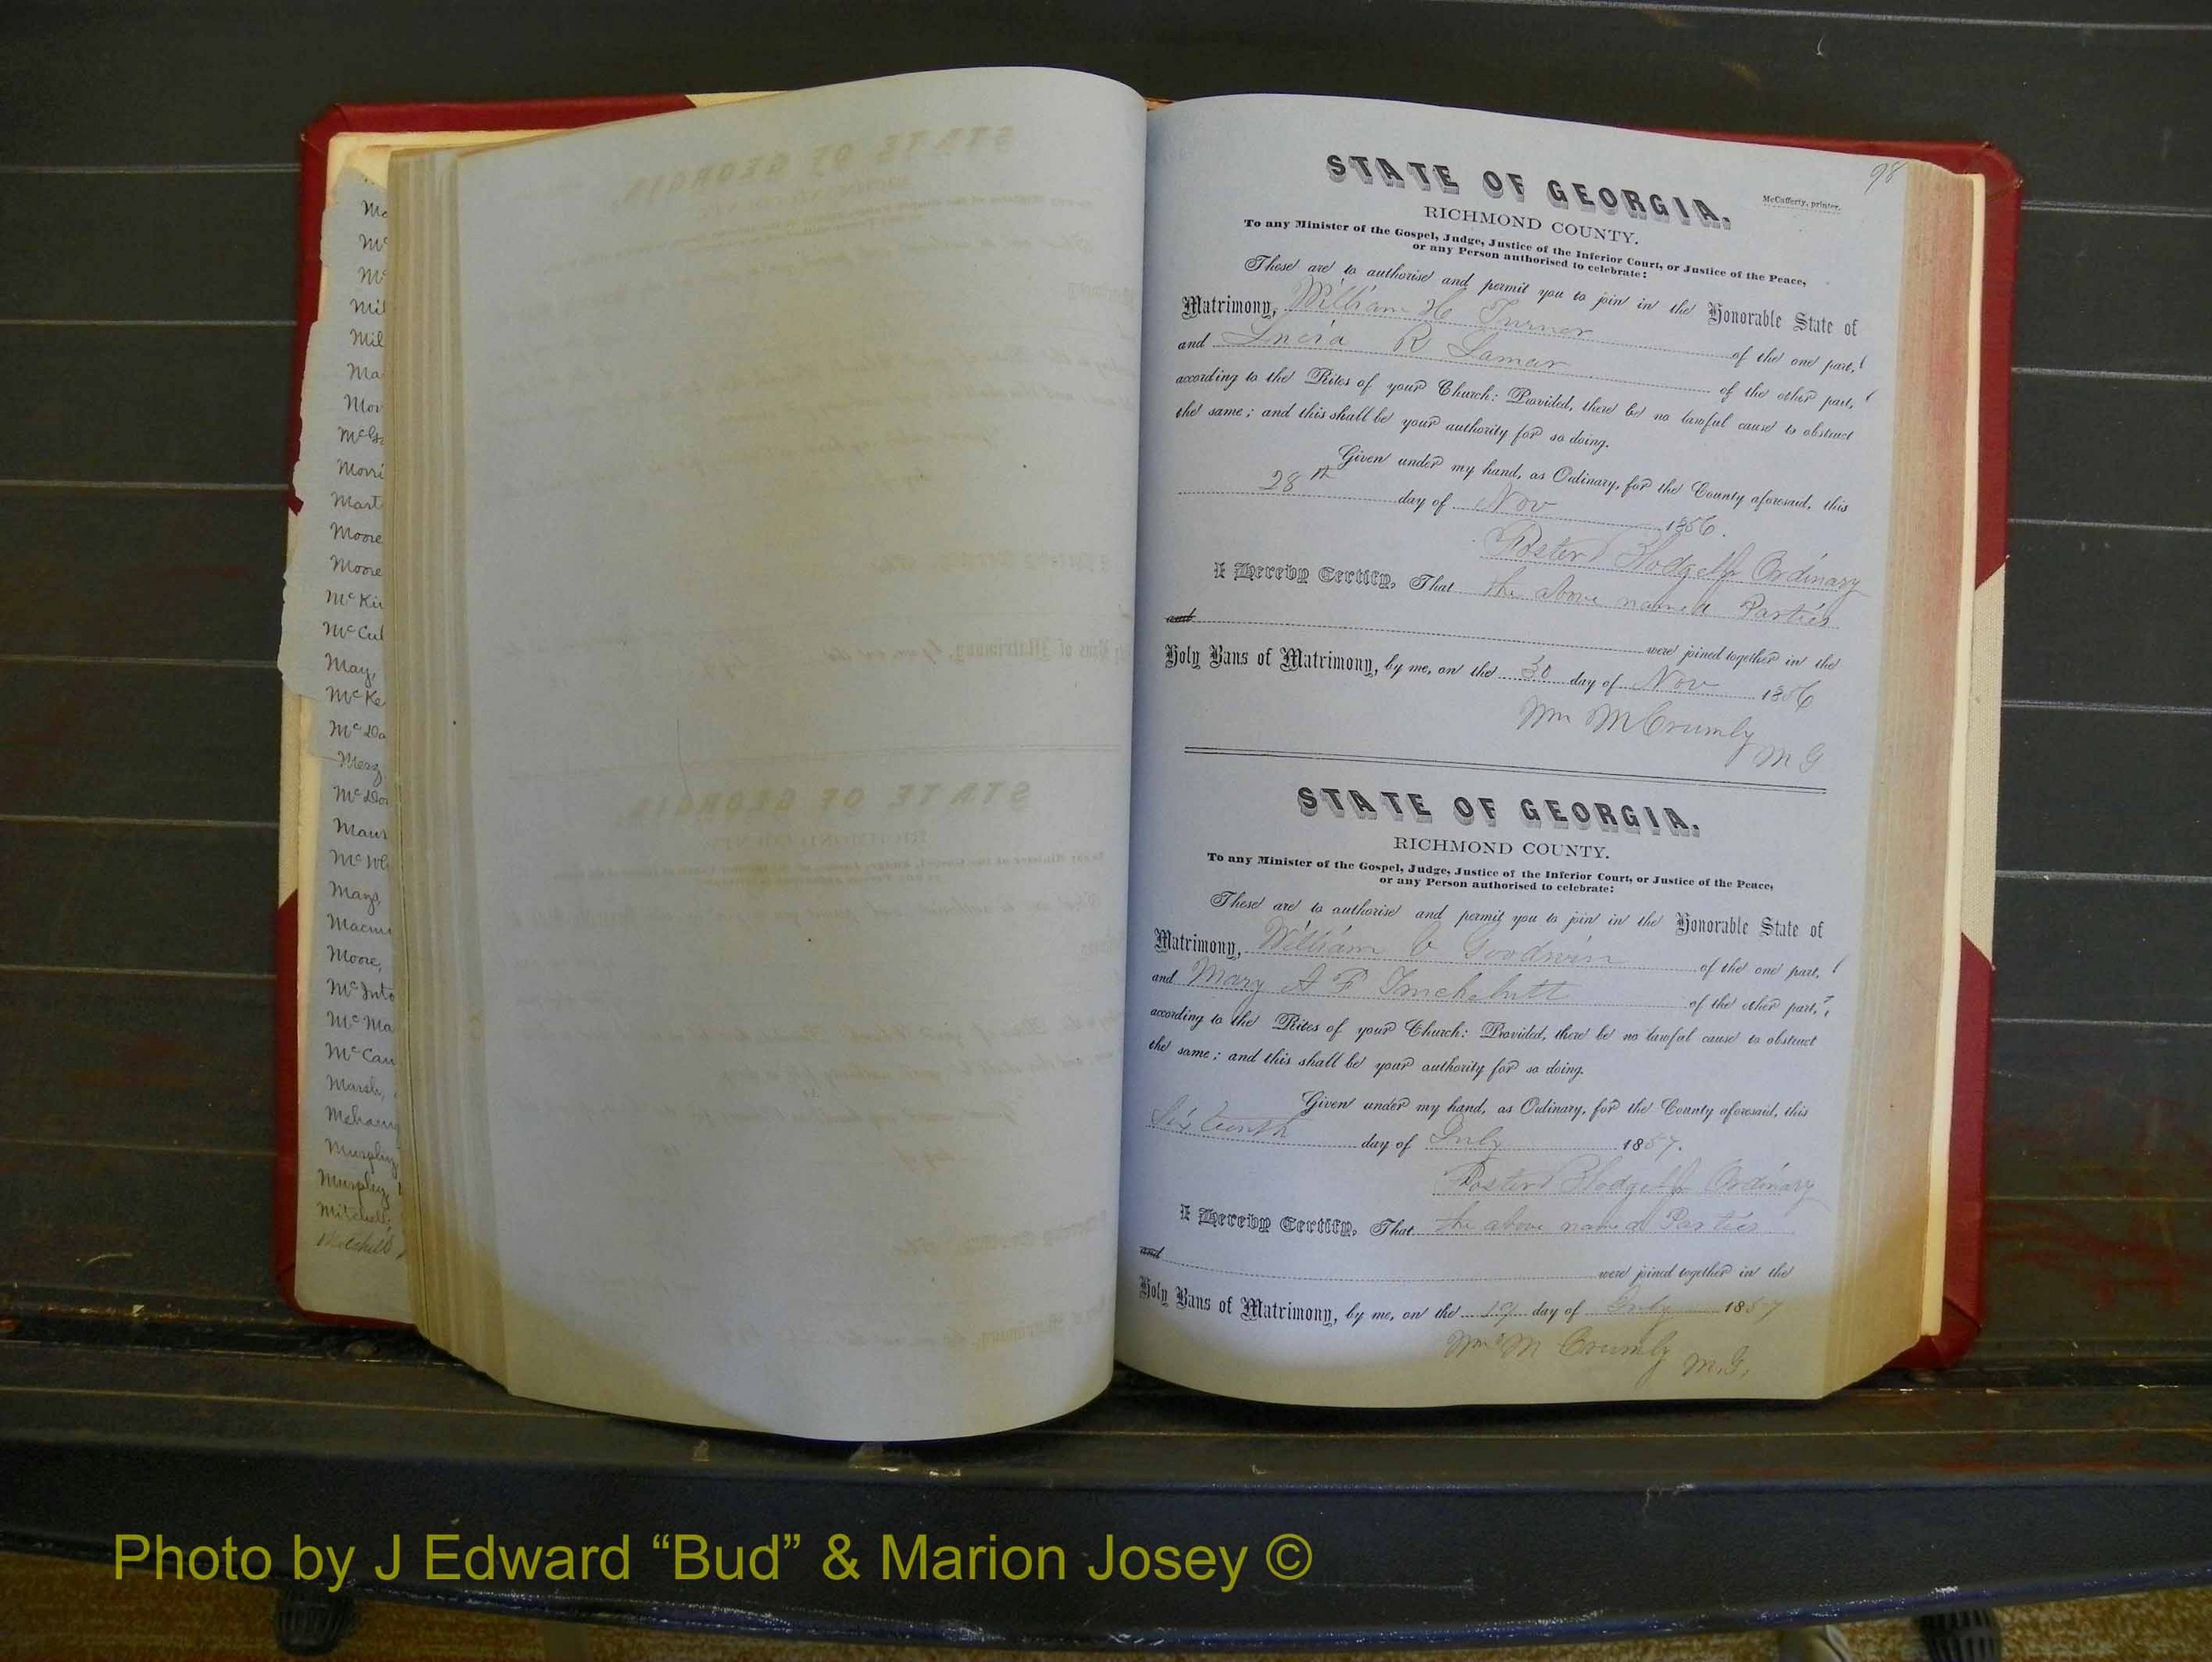 Mc
Mc
Mc
Mil
Mil
Ma
Mor
McGa
Morri
Mart
Moore
Moore
McKi
McCul
May,
McKe
McDa
Merz
McDo
Maur
Mays,
Macm
Moore,
McInto
McMa
McCan
Marsh,
Murphy
Murphy,
Mitchell,
Mitchell
98
STATE OF GEORGIA.
McCafferty, printer.
RICHMOND COUNTY.
To any Minister of the Gospel, Judge, Justice of the Inferior Court, or Justice of the Peace,
or any Person authorised to celebrate:
These are to authorise and permit you to join in the Honorable State of
Matrimony, William H Turner of the one part,
and R Lamar of the other part,
according to the Rites of your Church: Provided, there be no lawful cause to obstruct
the same; and this shall be your authority for so doing.
Given under my hand, as Ordinary, for the County aforesaid, this
28th day of Nov 1856.
Foster Blodget Jr Ordinary
I Hereby Certify, That the above named Parties
and were joined together in the
Holy Bans of Matrimony, by me, on the 30 day of Nov 1856
Wm M Crumly
M G
STATE OF GEORGIA.
RICHMOND COUNTY.
To any Minister of the Gospel, Judge, Justice of the Inferior Court, or Justice of the Peace,
or any Person authorised to celebrate:
These are to authorise and permit you to join in the Honorable State of
Matrimony, William C Goodwin of the one part,
and Mary A F of the other part,
according to the Rites of your Church: Provided, there be no lawful cause to obstruct
the same; and this shall be your authority for so doing.
Given under my hand, as Ordinary, for the County aforesaid, this
Sixteenth day of July 1857.
Foster Blodget Jr Ordinary
I Hereby Certify, That the above named Parties
and were joined together in the
Holy Bans of Matrimony, by me, on the 19 day of July 1857
Wm M Crumly M.G.
Photo by J Edward “Bud” & Marion Josey ©